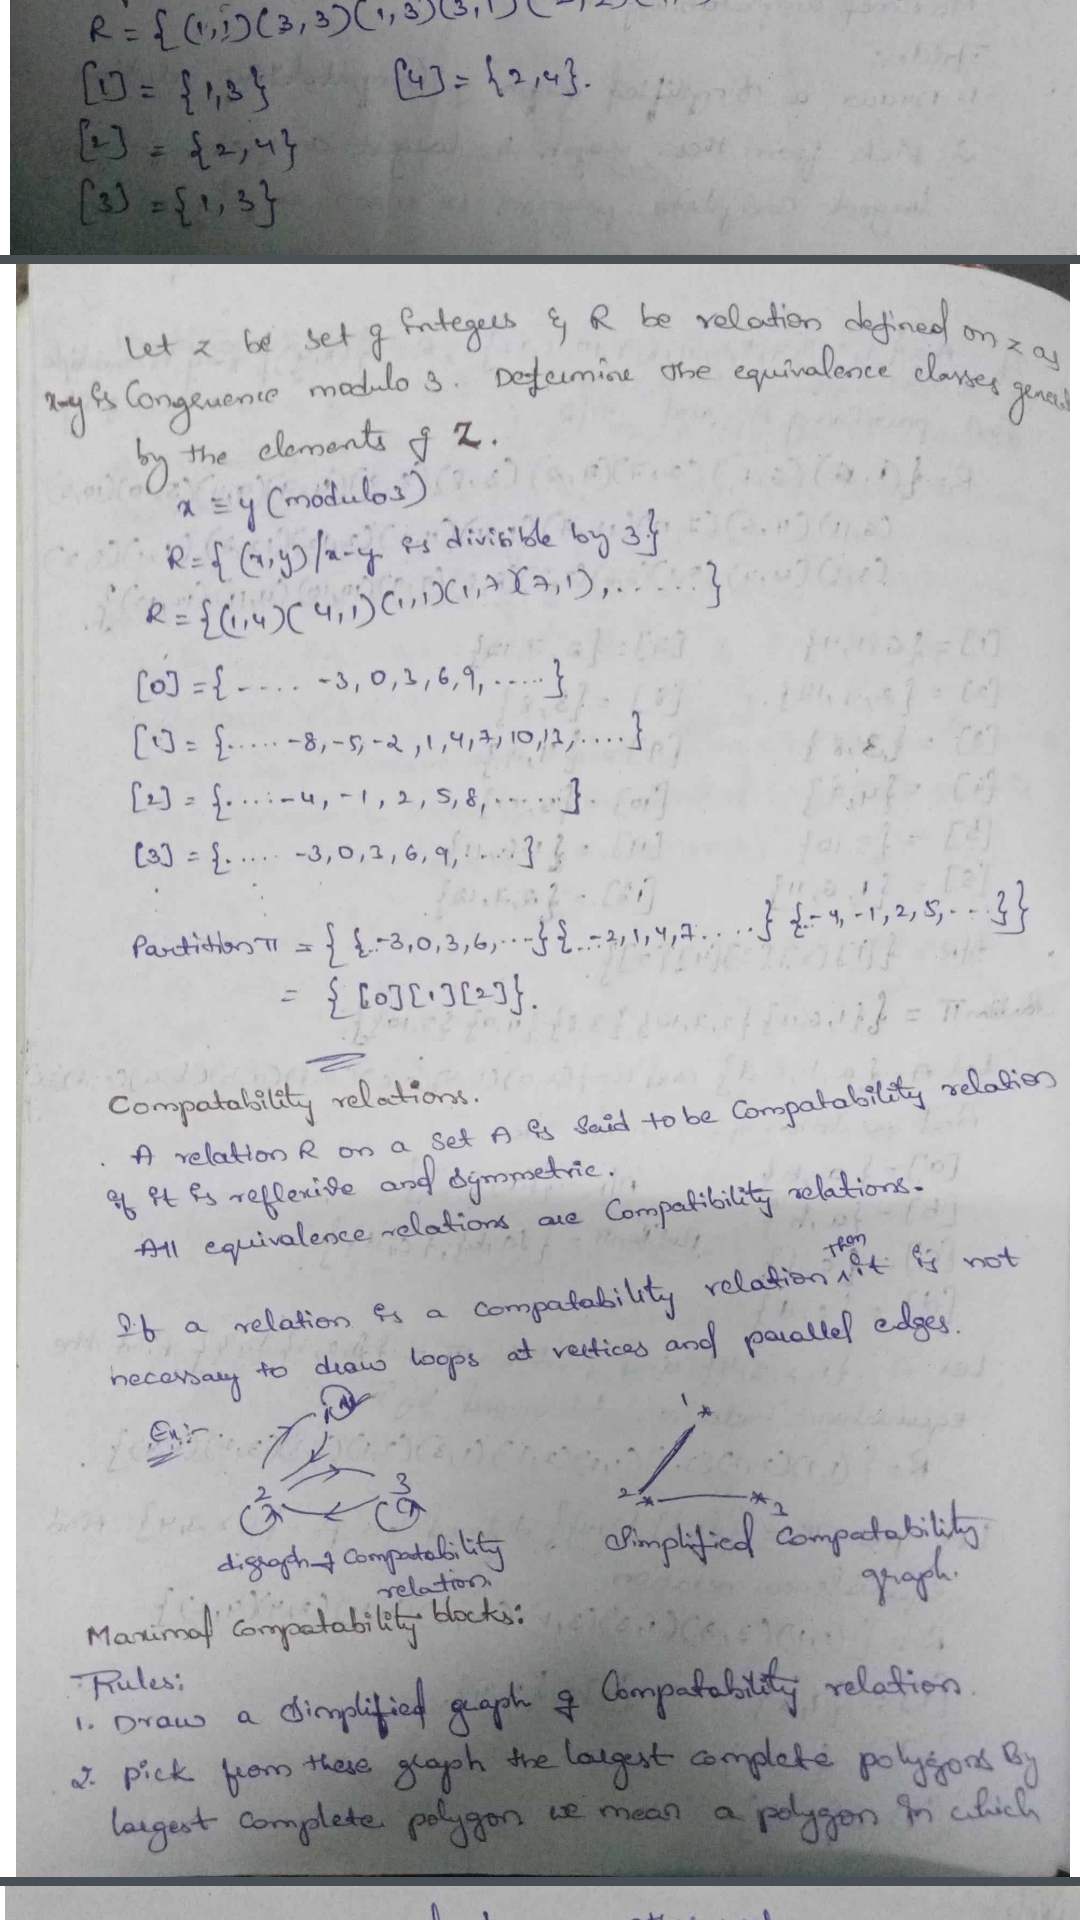 R = { (1,1) (3,3) (1,3) (3,1)
[1] = {1,3} [4] = {2,4}.
[2] = {2,4}
[3] = {1,3}
Let z be set of Integers & R be relation defined on z as
x-y is Congruence modulo 3. Determine the equivalence classes
by the elements of Z.
x ≡ y (modulo3)
R = { (x,y) / x-y is divisible by 3}
R = {(1,4) (4,1) (1,1) (1,7) (7,1), ...... }
[0] = {..... -3, 0, 3, 6, 9, ..... }
[1] = {..... -8, -5, -2, 1, 4, 7, 10, 13, .... }
[2] = {..... -4, -1, 2, 5, 8, ...... }
[3] = {..... -3, 0, 3, 6, 9, ..... }
Partition π = { {..-3,0,3,6, ...} {..-2,1,4,7.....} {..-4,-1,2,5,...} }
= { [0] [1] [2] }.
Compatability relations.
. A relation R on a Set A is said to be Compatability relation
if it is reflexive and symmetric.
All equivalence relations are Compatibility relations.
If a relation is a compatability relation then it is not
necessary to draw loops at vertices and parallel edges.
Ex:-
1 1
2 3 2 3
digraph of Compatability Simplified Compatability
relation. graph.
Maximal Compatability blocks:
Rules:
1. Draw a Simplified graph of Compatability relation.
2. pick from these graph the largest complete polygons By
largest Complete polygon we mean a polygon in which